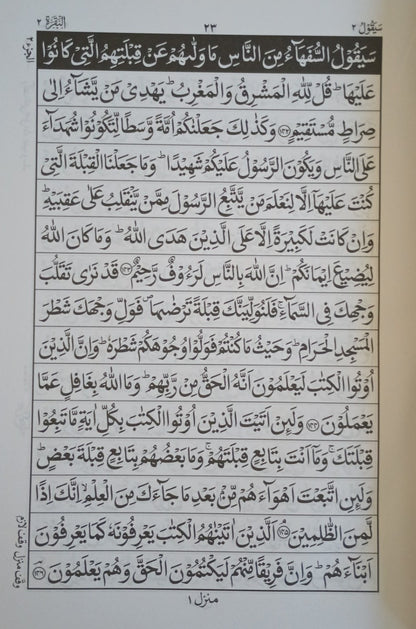 سَيَقُوْلُ ٢ ٢٣ الْبَقَرَة ٢
سَيَقُوْلُ السُّفَهَآءُ مِنَ النَّاسِ مَا وَلّٰىهُمْ عَنْ قِبْلَتِهِمُ الَّتِيْ كَانُوْا
عَلَيْهَا ؕ قُلْ لِّلّٰهِ الْمَشْرِقُ وَالْمَغْرِبُ ؕ يَهْدِيْ مَنْ يَّشَآءُ اِلٰى
صِرَاطٍ مُّسْتَقِيْمٍ ﴿۱۴۲﴾ وَكَذٰلِكَ جَعَلْنٰكُمْ اُمَّةً وَّسَطًا لِّتَكُوْنُوْا شُهَدَآءَ
عَلَى النَّاسِ وَيَكُوْنَ الرَّسُوْلُ عَلَيْكُمْ شَهِيْدًا ؕ وَمَا جَعَلْنَا الْقِبْلَةَ الَّتِيْ
كُنْتَ عَلَيْهَاۤ اِلَّا لِنَعْلَمَ مَنْ يَّتَّبِعُ الرَّسُوْلَ مِمَّنْ يَّنْقَلِبُ عَلٰى عَقِبَيْهِ ؕ
وَاِنْ كَانَتْ لَكَبِيْرَةً اِلَّا عَلَى الَّذِيْنَ هَدَى اللّٰهُ ؕ وَمَا كَانَ اللّٰهُ
لِيُضِيْعَ اِيْمَانَكُمْ ؕ اِنَّ اللّٰهَ بِالنَّاسِ لَرَءُوْفٌ رَّحِيْمٌ ﴿۱۴۳﴾ قَدْ نَرٰى تَقَلُّبَ
وَجْهِكَ فِي السَّمَآءِ ۚ فَلَنُوَلِّيَنَّكَ قِبْلَةً تَرْضٰىهَا ۪ فَوَلِّ وَجْهَكَ شَطْرَ
الْمَسْجِدِ الْحَرَامِ ؕ وَحَيْثُ مَا كُنْتُمْ فَوَلُّوْا وُجُوْهَكُمْ شَطْرَهٗ ؕ وَاِنَّ الَّذِيْنَ
اُوْتُوا الْكِتٰبَ لَيَعْلَمُوْنَ اَنَّهُ الْحَقُّ مِنْ رَّبِّهِمْ ؕ وَمَا اللّٰهُ بِغَافِلٍ عَمَّا
يَعْمَلُوْنَ ﴿۱۴۴﴾ وَلَئِنْ اَتَيْتَ الَّذِيْنَ اُوْتُوا الْكِتٰبَ بِكُلِّ اٰيَةٍ مَّا تَبِعُوْا
قِبْلَتَكَ ۚ وَمَاۤ اَنْتَ بِتَابِعٍ قِبْلَتَهُمْ ۚ وَمَا بَعْضُهُمْ بِتَابِعٍ قِبْلَةَ بَعْضٍ ؕ
وَلَئِنِ اتَّبَعْتَ اَهْوَآءَهُمْ مِّنْۢ بَعْدِ مَا جَآءَكَ مِنَ الْعِلْمِ ۙ اِنَّكَ اِذًا
لَّمِنَ الظّٰلِمِيْنَ ﴿۱۴۵﴾ اَلَّذِيْنَ اٰتَيْنٰهُمُ الْكِتٰبَ يَعْرِفُوْنَهٗ كَمَا يَعْرِفُوْنَ
اَبْنَآءَهُمْ ؕ وَاِنَّ فَرِيْقًا مِّنْهُمْ لَيَكْتُمُوْنَ الْحَقَّ وَهُمْ يَعْلَمُوْنَ ﴿۱۴۶﴾
منزل ١
وقف لازم
وقف منزل